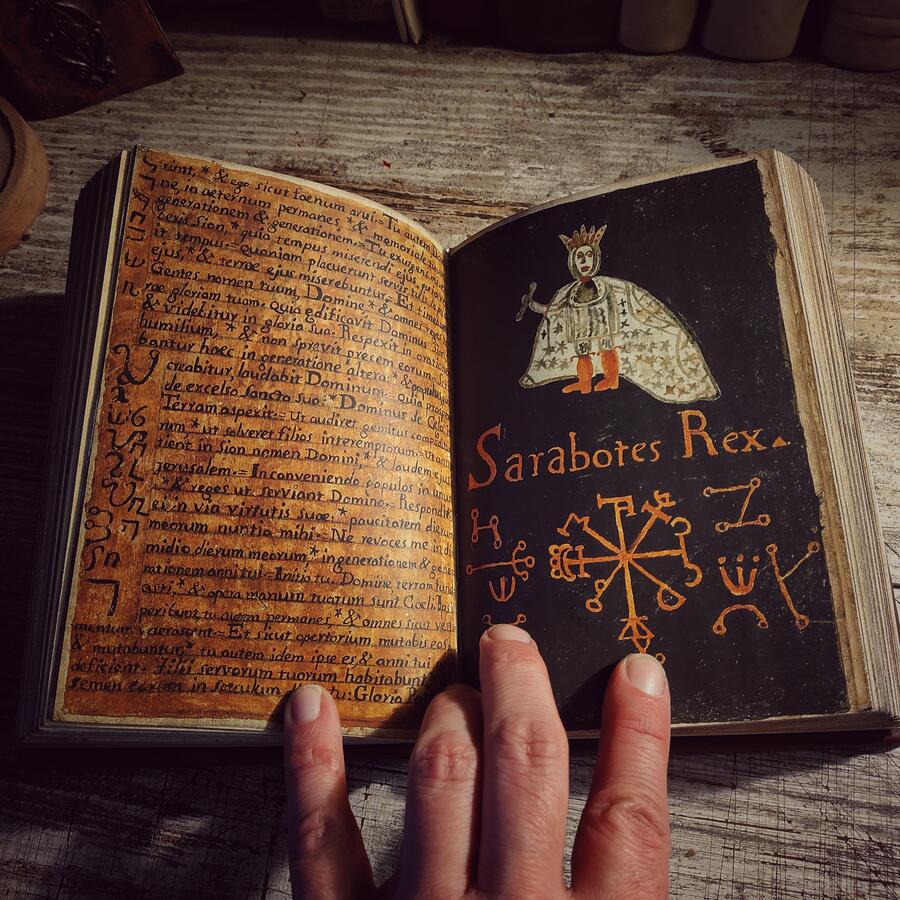 runt, * & ego sicut foenum arui.= Tu autem
ne, in aeternum permanes, * & memoriale
generationem & generationem.= Tu exurgens
beris Sion, * quia tempus miserendi ejus, quia
it tempus.= Quoniam placuerunt servis tuis
ejus, * & terrae ejus miserebuntur.= Et
Gentes nomen tuum, Domine, * & omnes reges
rae gloriam tuam. Quia edificavit Dominus
& videbitur in gloria sua. Respexit in oratio
humilium, * & non sprevit precem eorum.
bantur haec in generatione altera: * & populus
creabitur, laudabit Dominum. quia prospe
de excelso sancto suo. * Dominus de Celo
Terram aspexit.= Ut audiret gemitus compedi
rum * ut solveret filios interemptorum.= Ut annun
tient in sion nomen Domini, * & laudem ejus
jerusalem.= In conveniendo populos in unum
* & reges ut serviant Domino. Respondit
ei in via virtutis suae: * paucitatem die
meorum nuntia mihi.= Ne revoces me in di
midio dierum meorum * in generationem & gene
rationem anni tui.= Initio tu, Domine, terram fund
asti, * & opera manuum tuarum sunt Coeli. Ipsi
peribunt, tu autem permanes, * & omnes sicut vesti
mentum veterascent.= Et sicut opertorium mutabis eos
& mutabuntur: * tu autem idem ipse es, & anni tui
deficient. Filii servorum tuorum habitabunt
semen eorum in saeculum tu: Gloria Pa
Sarabotes Rex.